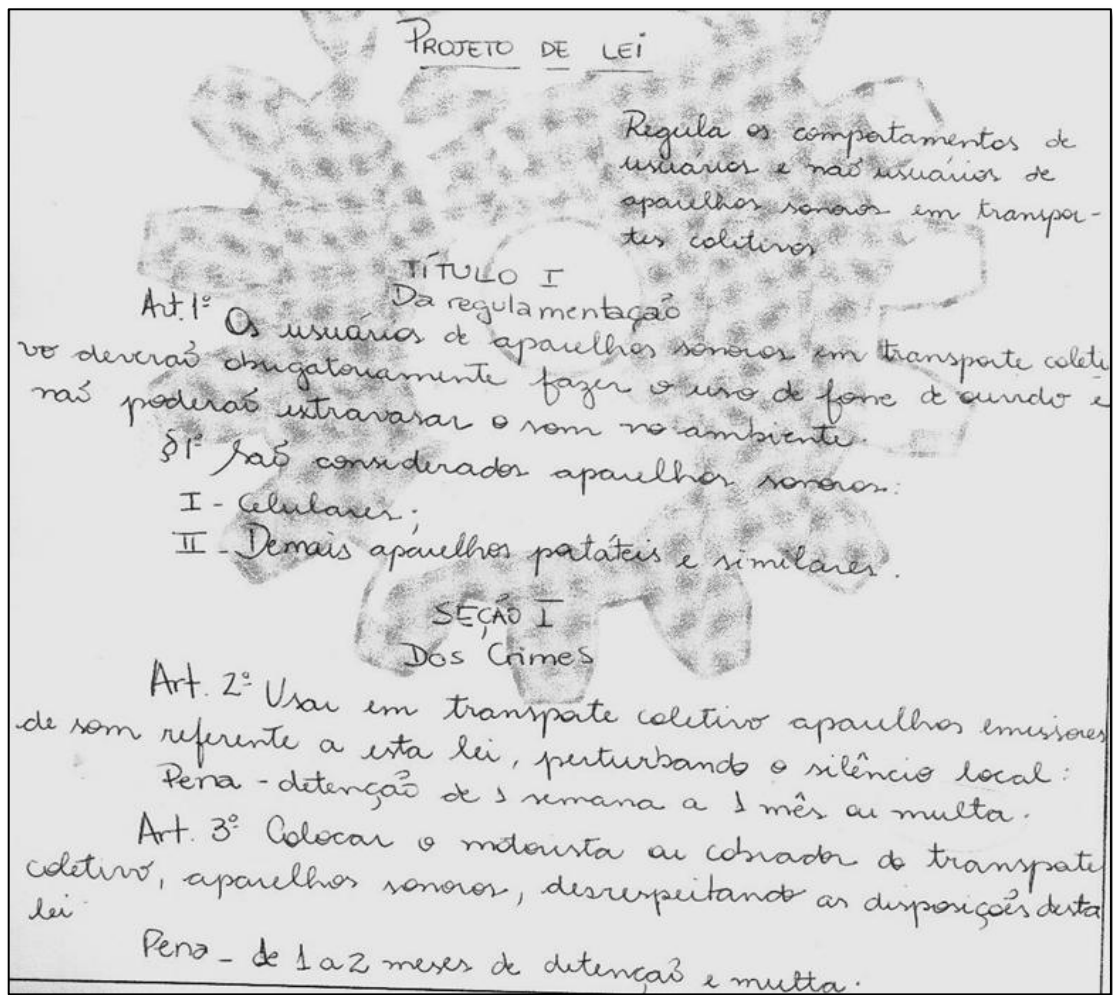 PROJETO DE LEI
Regula os comportamentos de
usuários e não usuários de
aparelhos sonoros em transpor-
tes coletivos
TÍTULO I
Da regulamentação
Art. 1º Os usuários de aparelhos sonoros em transporte coleti
vo deverão obrigatoriamente fazer o uso de fone de ouvido e
não poderão extravasar o som no ambiente.
§1º São considerados aparelhos sonoros:
I - Celulares;
II - Demais aparelhos portáteis e similares.
SEÇÃO I
Dos Crimes
Art. 2º Usar em transporte coletivo aparelhos emissores
de som referente a esta lei, perturbando o silêncio local:
Pena - detenção de 1 semana a 1 mês ou multa.
Art. 3º Colocar o motorista ou cobrador do transporte
coletivo, aparelhos sonoros, desrespeitando as disposições desta
lei
Pena - de 1 a 2 meses de detenção e multa.